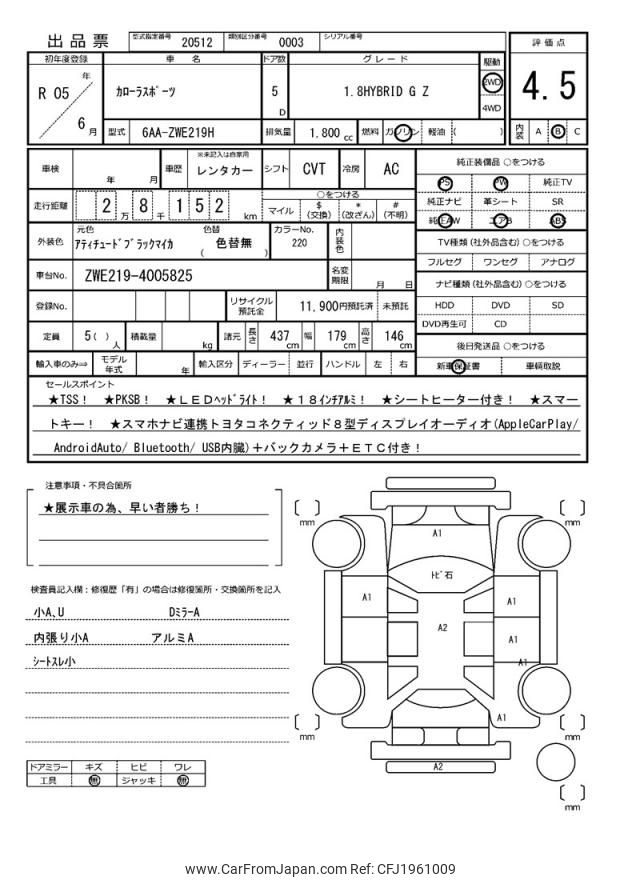 出品票 型式指定番号 20512 類別区分番号 0003 シリアル番号
評価点
4.5
内装 A B C
初年度登録 車名 ドア数 グレード 駆動
R 05 年 6 月
カローラスポーツ 5 D 1.8HYBRID G Z 2WD 4WD
型式 6AA-ZWE219H 排気量 1,800 cc 燃料 ガソリン 軽油 ( )
車検 年 月 車歴 ※未記入は自家用 レンタカー シフト CVT 冷房 AC
走行距離 2 万 8 千 1 5 2 km
○をつける
マイル $ (交換) * (改ざん) # (不明)
外装色 元色 アティチュードブラックマイカ 色替 ( 色替無 ) カラーNo. 220 内装色
車台No. ZWE219-4005825 名変期限 月 日
登録No. リサイクル預託金 11,900円預託済 未預託
定員 5( ) 人 積載量 kg 諸元 長さ 437 cm 幅 179 cm 高さ 146 cm
輸入車のみ⇒ モデル年式 年 輸入区分 ディーラー 並行 ハンドル 左 右
純正装備品 ○をつける
PS PW 純正TV
純正ナビ 革シート SR
純正AW エアB ABS
TV種類 (社外品含む) ○をつける
フルセグ ワンセグ アナログ
ナビ種類 (社外品含む) ○をつける
HDD DVD SD
DVD再生可 CD
後日発送品 ○をつける
新車保証書 車輌取説
セールスポイント
★TSS! ★PKSB! ★LEDヘッドライト! ★18インチアルミ! ★シートヒーター付き! ★スマー
トキー! ★スマホナビ連携トヨタコネクティッド8型ディスプレイオーディオ(AppleCarPlay/
AndroidAuto/ Bluetooth/ USB内臓)+バックカメラ+ETC付き!
注意事項・不具合箇所
★展示車の為、早い者勝ち!
検査員記入欄:修復歴「有」の場合は修復箇所・交換箇所を記入
小A、U Dミラ-A
内張り小A アルミA
シートスレ小
ドアミラー キズ ヒビ ワレ
工具 無 ジャッキ 無
mm
mm
A1
トビ石
A1
A1
A2
A1
A1
A1
mm
mm
A2
mm
www.CarFromJapan.com Ref: CFJ1961009